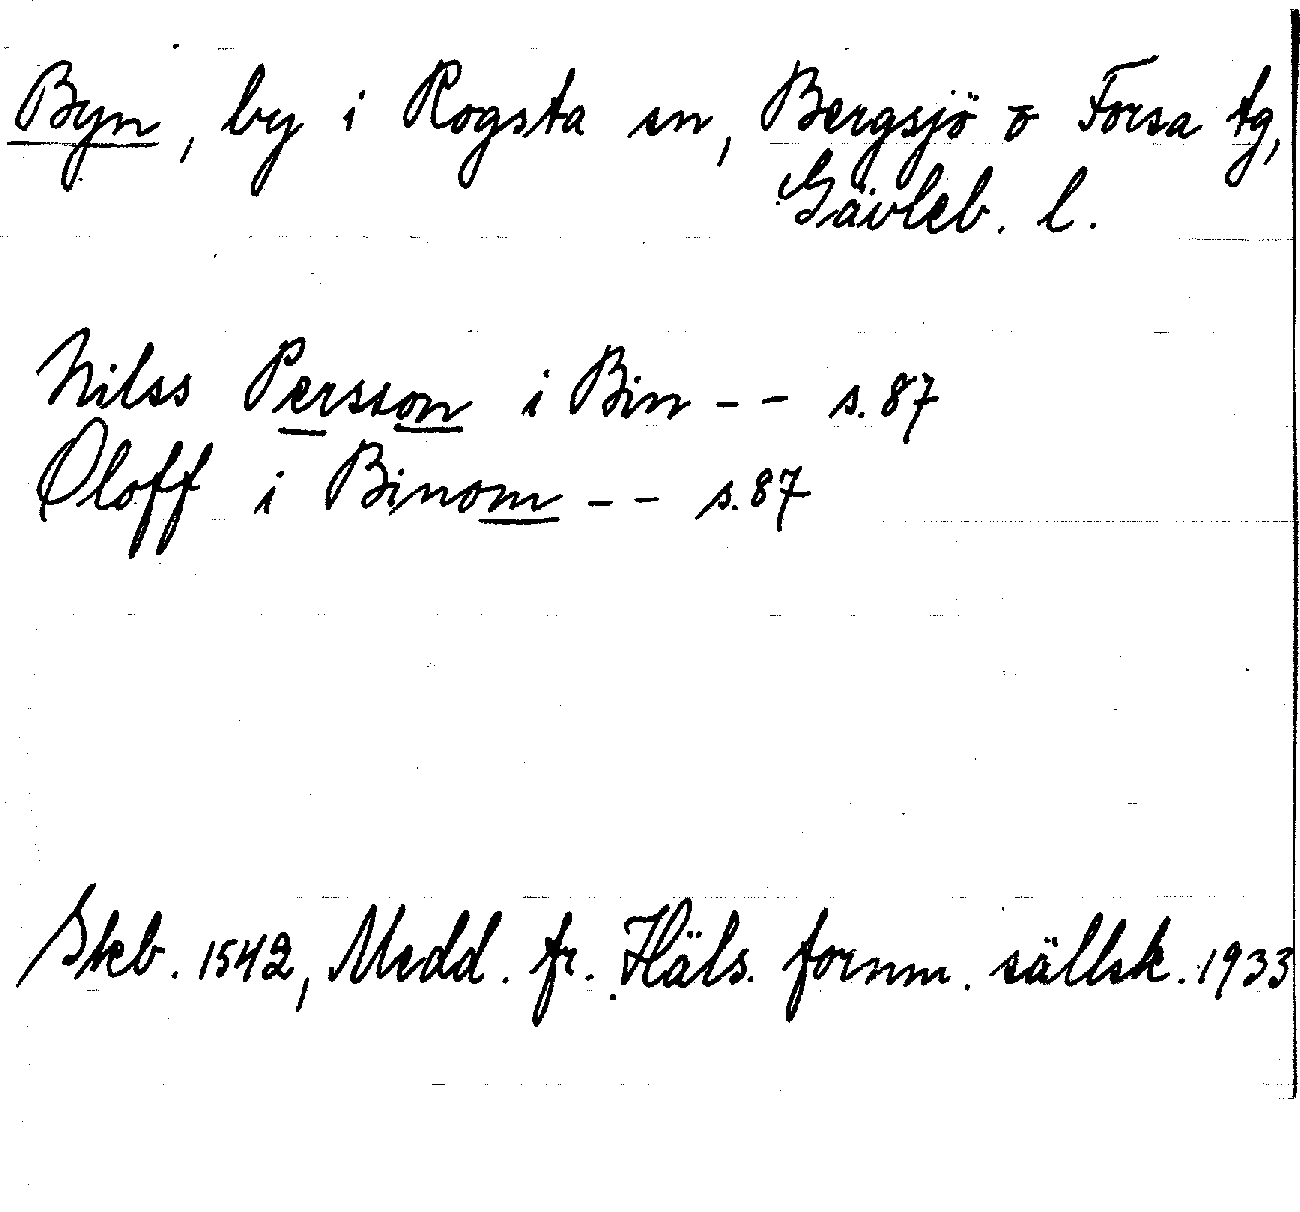 Byn, by i Rogsta sn, Bergsjö o Forsa tg,
Gävleb. l.
Nilss Persson i Bin - - s. 87
Oloff i Binom - - s. 87
Skb. 1542, Medd. fr. Häls. fornm. sällsk. 1933